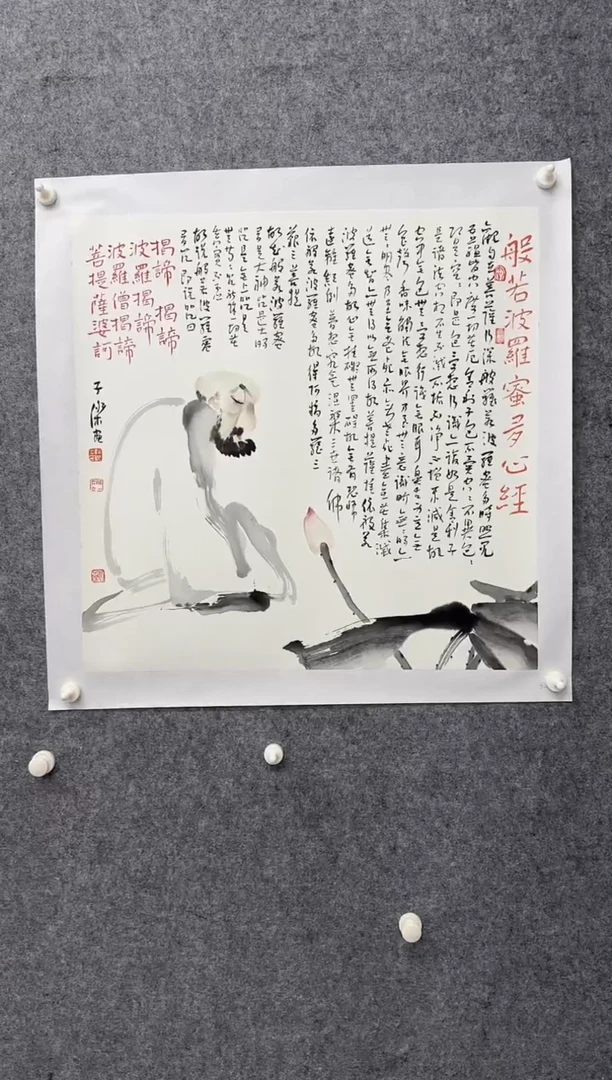 般若波羅蜜多心經
觀自在菩薩行深般若波羅蜜多時照見
五蘊皆空度一切苦厄舍利子色不異空空不異色色
即是空空即是色受想行識亦復如是舍利子
是諸法空相不生不滅不垢不淨不增不減是故
空中無色無受想行識無眼耳鼻舌身意無
色聲香味觸法無眼界乃至無意識界無無明亦
無無明盡乃至無老死亦無老死盡無苦集滅
道無智亦無得以無所得故菩提薩埵依般若
波羅蜜多故心無罣礙無罣礙故無有恐怖
遠離顛倒夢想究竟涅槃三世諸佛
依般若波羅蜜多故得阿耨多羅三
藐三菩提
故知般若波羅蜜多
是大神咒是大明
咒是無上咒是
無等等咒能除一切苦
真實不虛
故說般若波羅蜜
多咒即說咒曰
揭諦 揭諦
波羅揭諦
波羅僧揭諦
菩提薩婆訶
子樂画